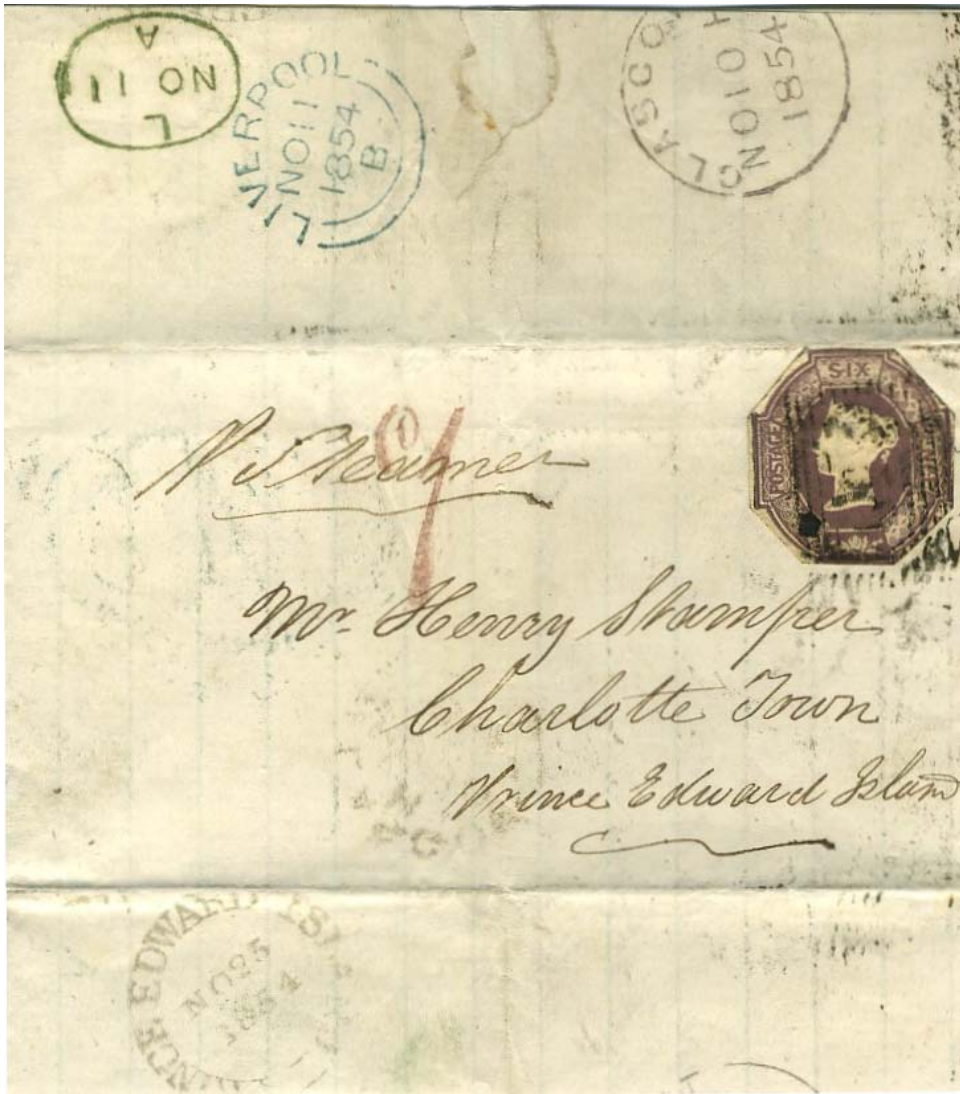 L
NO 11
A
LIVERPOOL
NO 11
1854
B
GLASGO
NO 10 H
1854
SIX
POSTAGE
PENCE
Steamer
Mr. Henry Stamper
Charlotte Town
Prince Edward Island
INCE EDWARD ISL
NO 25
1854